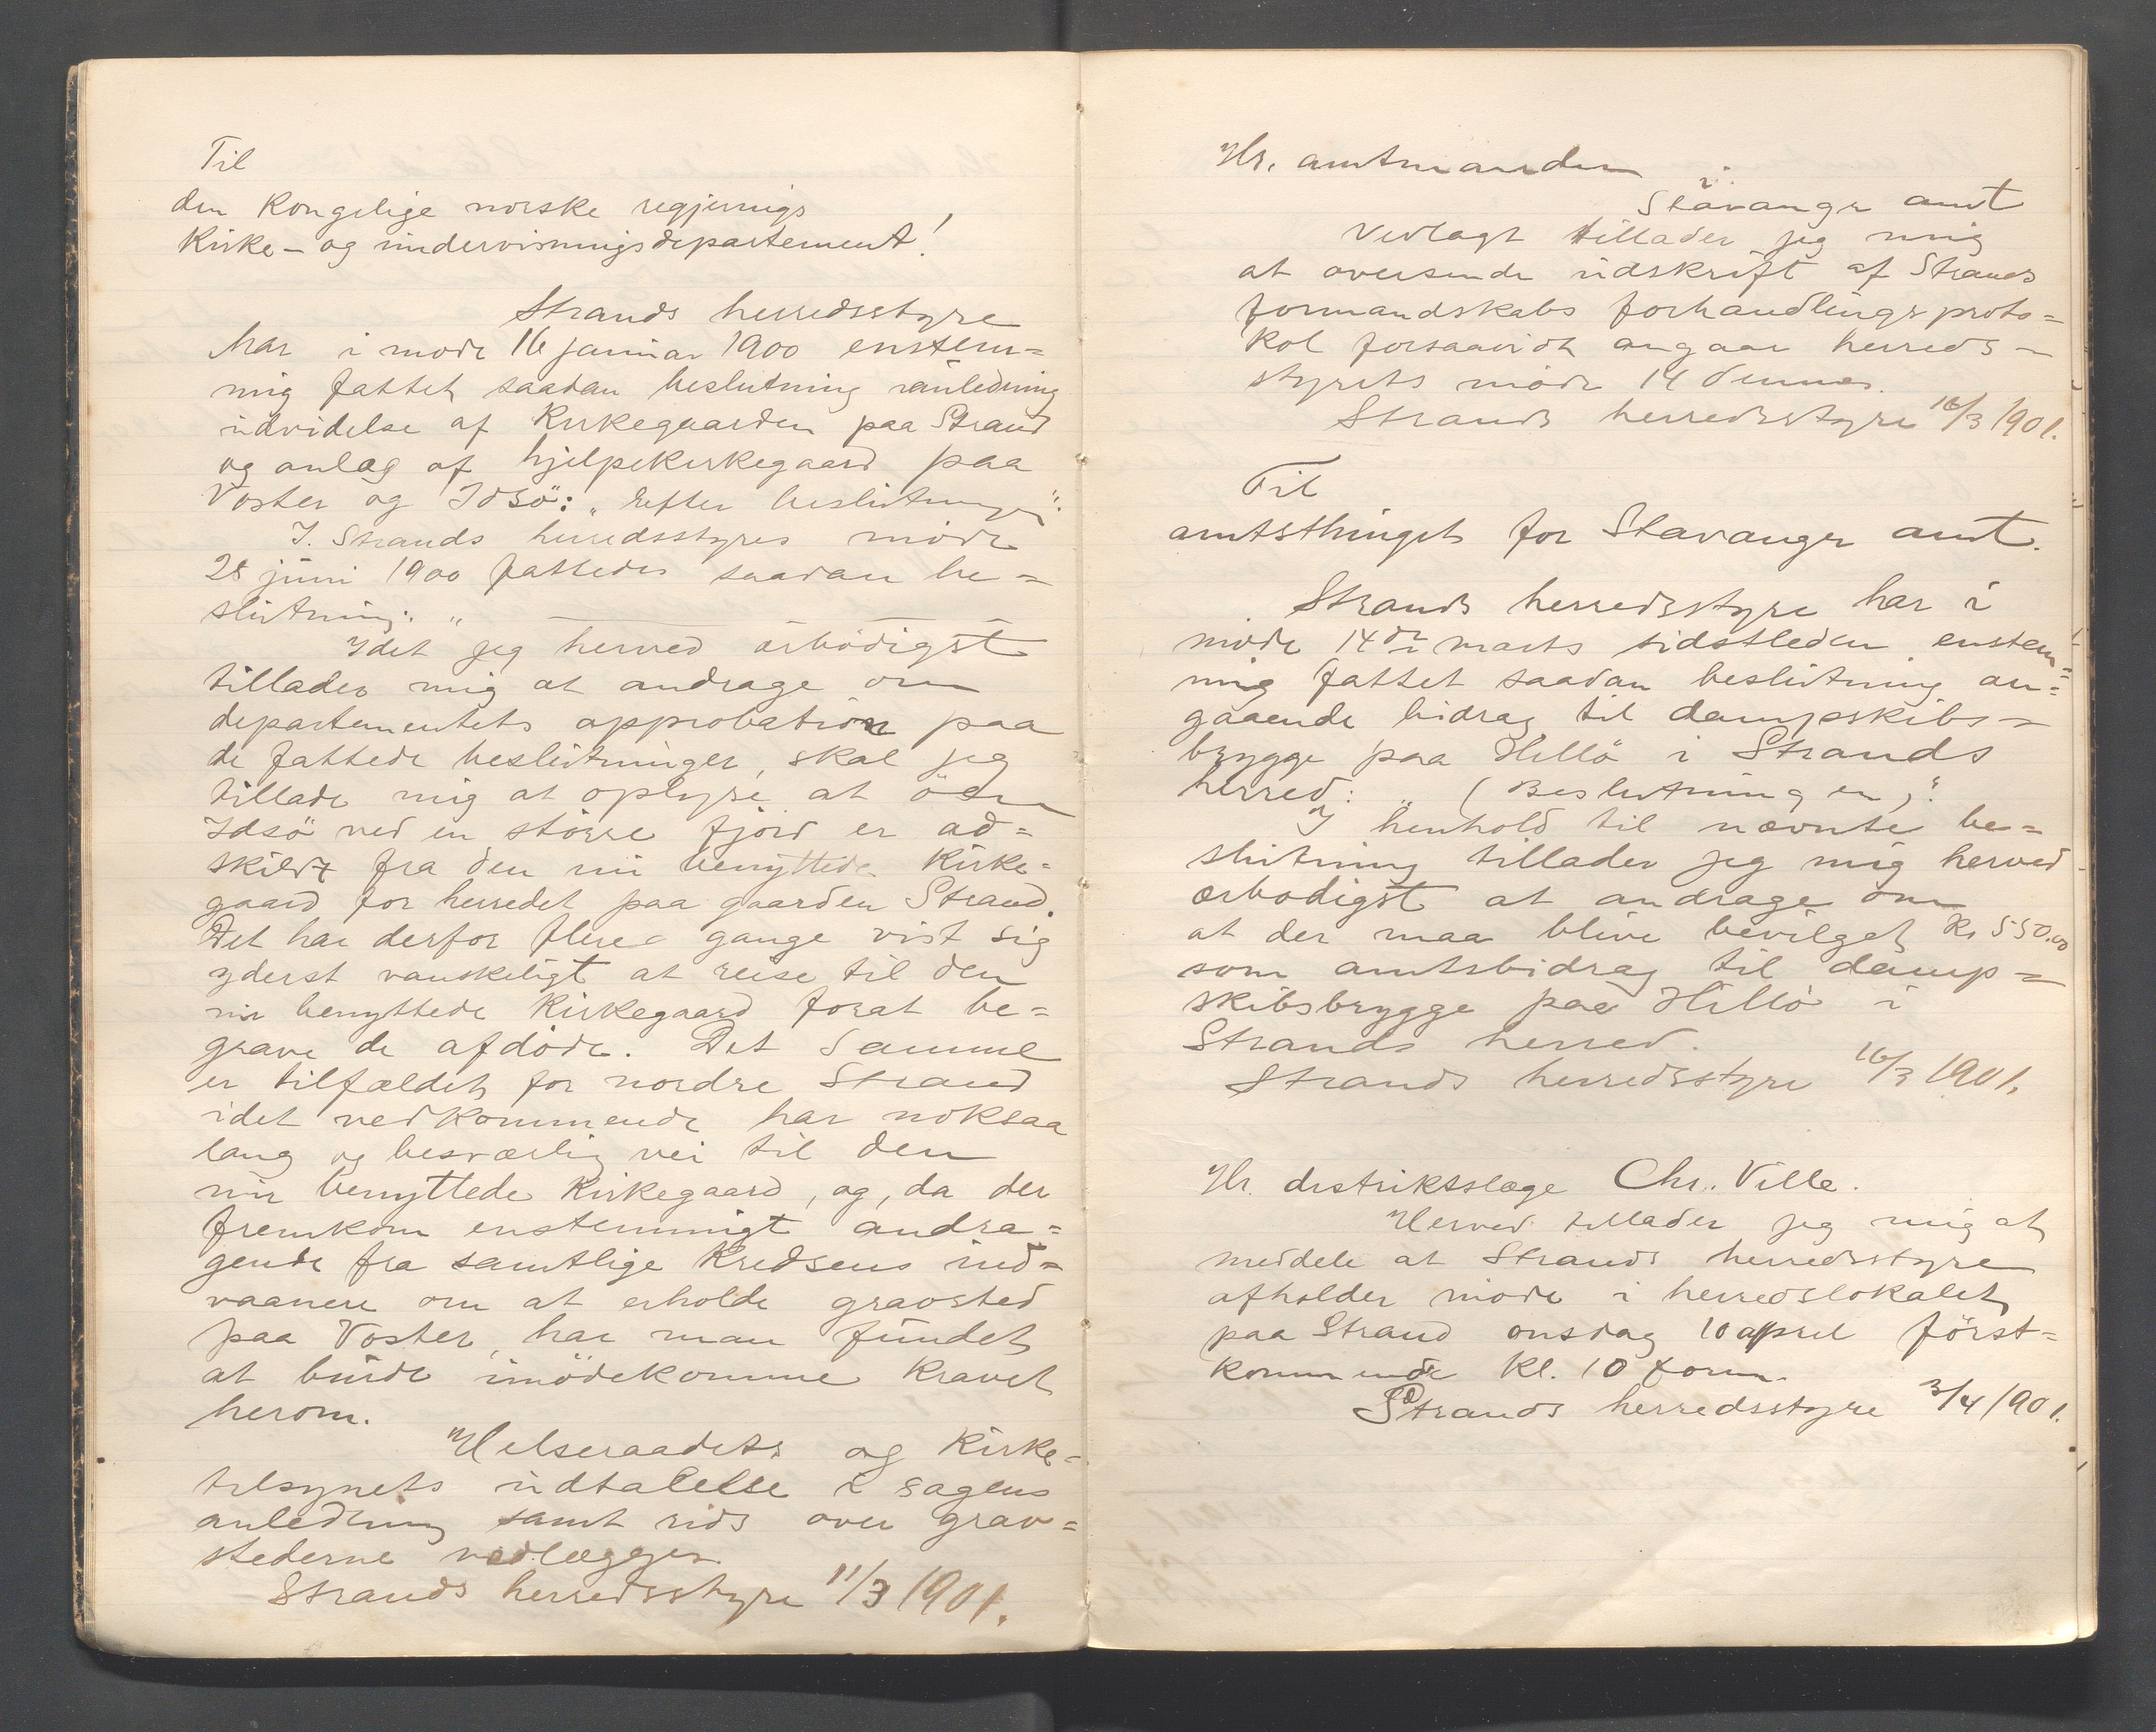 Til
den kongelige norske regjerings
Kirke- og undervisningsdepartement!
Strands herredsstyre
har i møde 16 januar 1900 enstem=
mig fattet saadan beslutning i anledning
udvidelse af Kirkegaarden paa Strand
og anlæg af hjelpekirkegaard paa
Voster og Idsö: „Efter beslutningen“.
I. Strands herredsstyres møde
28 juni 1900 fattedes saadan be=
slutning: „ — — —
Idet jeg herved ærbødigst
tillader mig at andrage om
departementets approbation paa
de fattede beslutninger, skal jeg
tillade mig at oplyse at öen
Idsö ved en större fjord er ad=
skildt fra den nu benyttede Kirke=
gaard for herredet paa gaarden Strand.
Det har derfor flere gange vist sig
yderst vanskeligt at reise til den
nu benyttede Kirkegaard forat be=
grave de afdöde. Det Samme
er tilfældet for nordre Strand
idet vedkommende har noksaa
lang og besværlig vei til den
nu benyttede Kirkegaard, og, da der
fremkom enstemmigt andra=
gende fra samtlige Kredsens ind=
vaanere om at erholde gravsted
paa Voster, har man fundet
at burde imödekomme Kravet
herom.
Helseraadets og Kirke=
tilsynets udtalelse i sagens
anledning samt rids over grav=
stederne vedlægges.
Strands herredsstyre 11/3 1901.
Hr. amtmanden
i Stavanger amt
Vedlagt tillader jeg mig
at oversende udskrift af Strands
formandskabs forhandlingsproto=
kol forsaavidt angaar herreds=
styrets møde 14 dennes.
Strands herredsstyre 16/3 1901.
Til
amtsthinget for Stavanger amt.
Strands herredsstyre har i
møde 14de marts sidstleden enstem=
mig fattet saadan beslutning an=
gaaende bidrag til dampskibs=
brygge paa Hellö i Strands
herred: „(Beslutningen)“.
I henhold til nævnte be=
slutning tillader jeg mig herved
ærbødigst at andrage om
at der maa blive bevilget Kr 550.00
som amtsbidrag til damp=
skibsbrygge paa Hellö i
Strands herred.
Strands herredsstyre 16/3 1901.
Hr. distriktslæge Chr. Ville.
Herved tillader jeg mig at
meddele at Strands herredsstyre
afholder møde i herredslokalet
paa Strand onsdag 10 april först=
kommende Kl. 10 form.
Strands herredsstyre 3/4 1901.